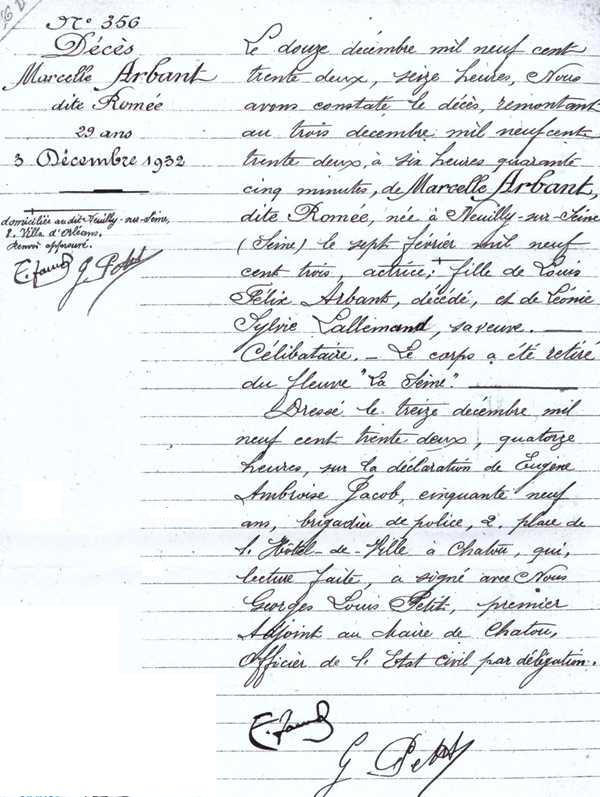 N° 356
Décès
Marcelle Arbant
dite Romée
29 ans
3 Décembre 1932
domiciliée audit Neuilly-sur-Seine,
2. Villa d'Orléans.
Renvoi approuvé.
G. Petit
Le douze décembre mil neuf cent
trente deux, seize heures, Nous
avons constaté le décès, remontant
au trois décembre mil neuf cent
trente deux, à six heures quarante
cinq minutes, de Marcelle Arbant,
dite Romée, née à Neuilly-sur-Seine
(Seine) le sept février mil neuf
cent trois, actrice; fille de Louis
Félix Arbant, décédé, et de Léonie
Sylvie Lallemand, sa veuve. —
Célibataire. — Le corps a été retiré
du fleuve "La Seine". —
Dressé le treize décembre mil
neuf cent trente deux, quatorze
heures, sur la déclaration de Eugène
Ambroise Jacob, cinquante neuf
ans, brigadier de police, 2. place de
l'Hôtel-de-Ville à Chatou, qui,
lecture faite, a signé avec Nous
Georges Louis Petit, premier
Adjoint au Maire de Chatou,
Officier de l'Etat civil par délégation.
G Petit